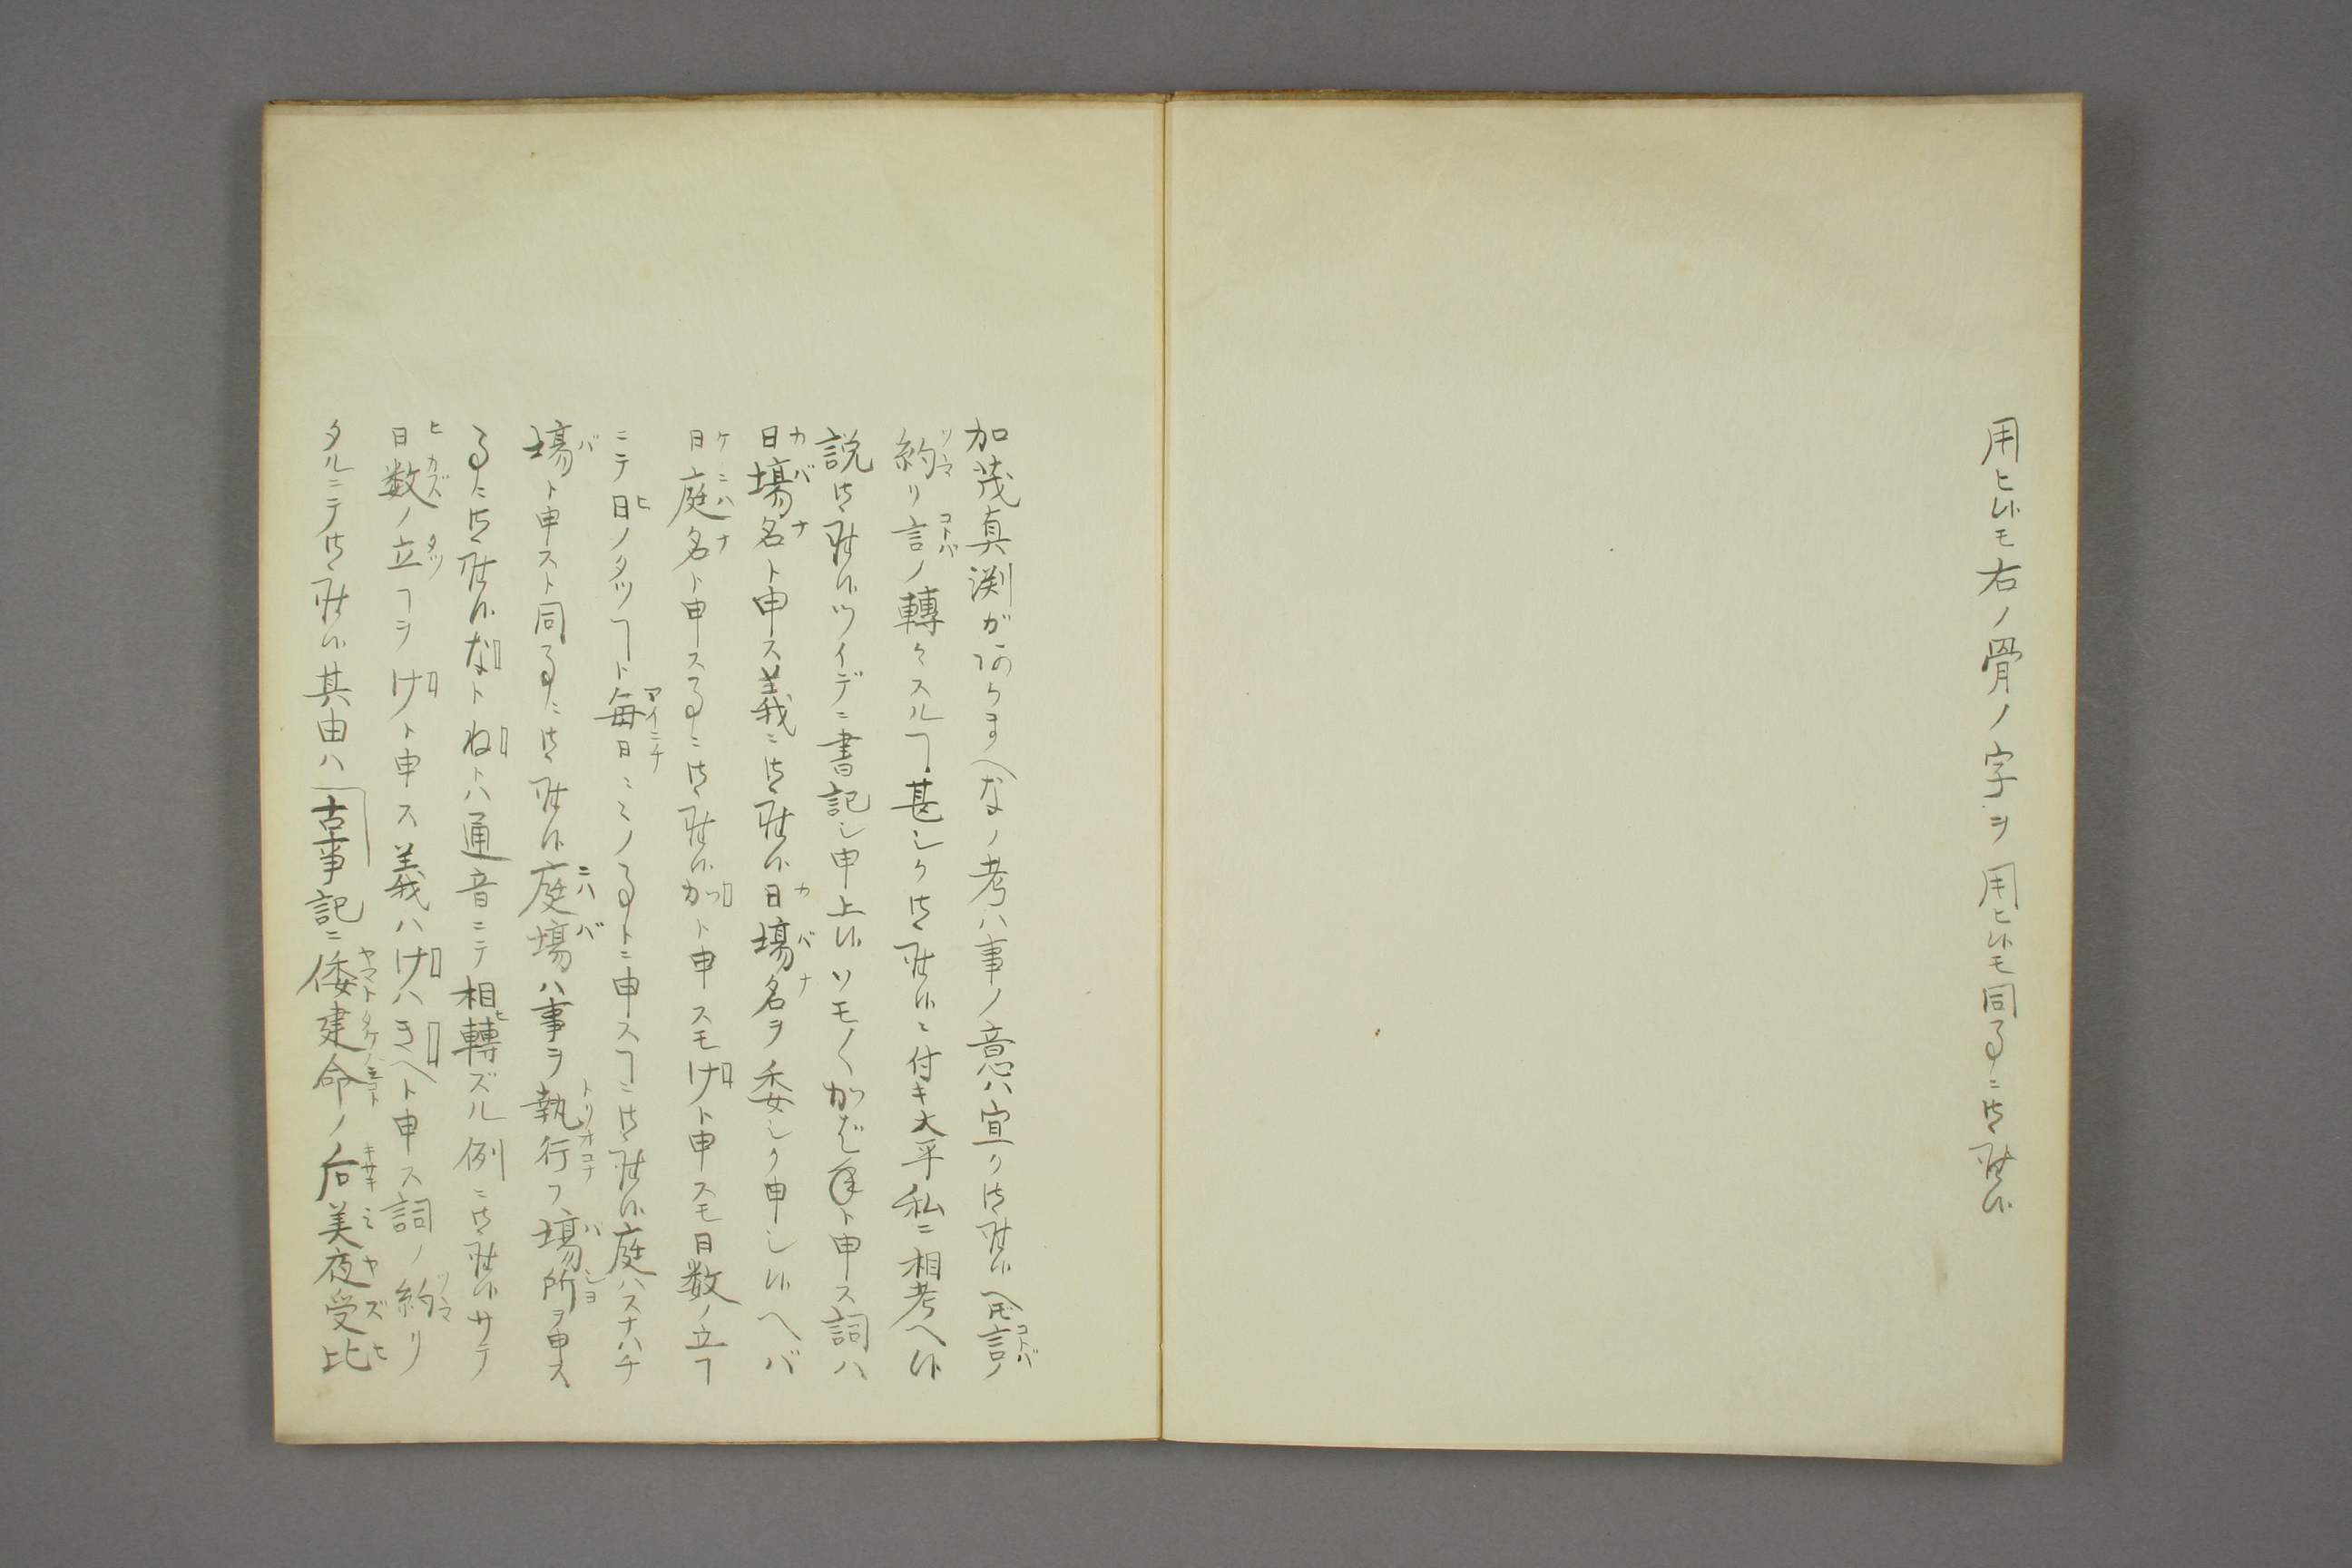 用ヒ候モ右ノ骨ノ字ヲ用ヒ候モ同事ニ御座候
加茂真渕がありますへなノ考ハ事ノ意ハ宜ク御座候ヘ𪜈言ノ
約リ言ノ轉々スルヿ甚シク御座候ニ付キ大平私ニ相考ヘ候
説御座候ツイデニ書記シ申上候ソモ〱かばねト申ス詞ハ
日場名ト申ス義ニ御座候日場名ヲ委シク申シ候ヘバ
日庭名ト申ス事ニ御座候かト申スモけト申スモ日数ノ立ヿ
ニテ日ノタツヿト毎日ニミノ事トニ申スヿニ御座候庭ハスナハチ
場ト申スト同事ニ御座候庭場ハ事ヲ執行フ場所ヲ申ス
事ニ御座候なトねトハ通音ニテ相轉ズル例ニ御座候サテ
日数ノ立ヿヲけト申ス義ハけハきへト申ス詞ノ約リ
タルニテ御座候其由ハ古事記ニ倭建命ノ后美夜受比